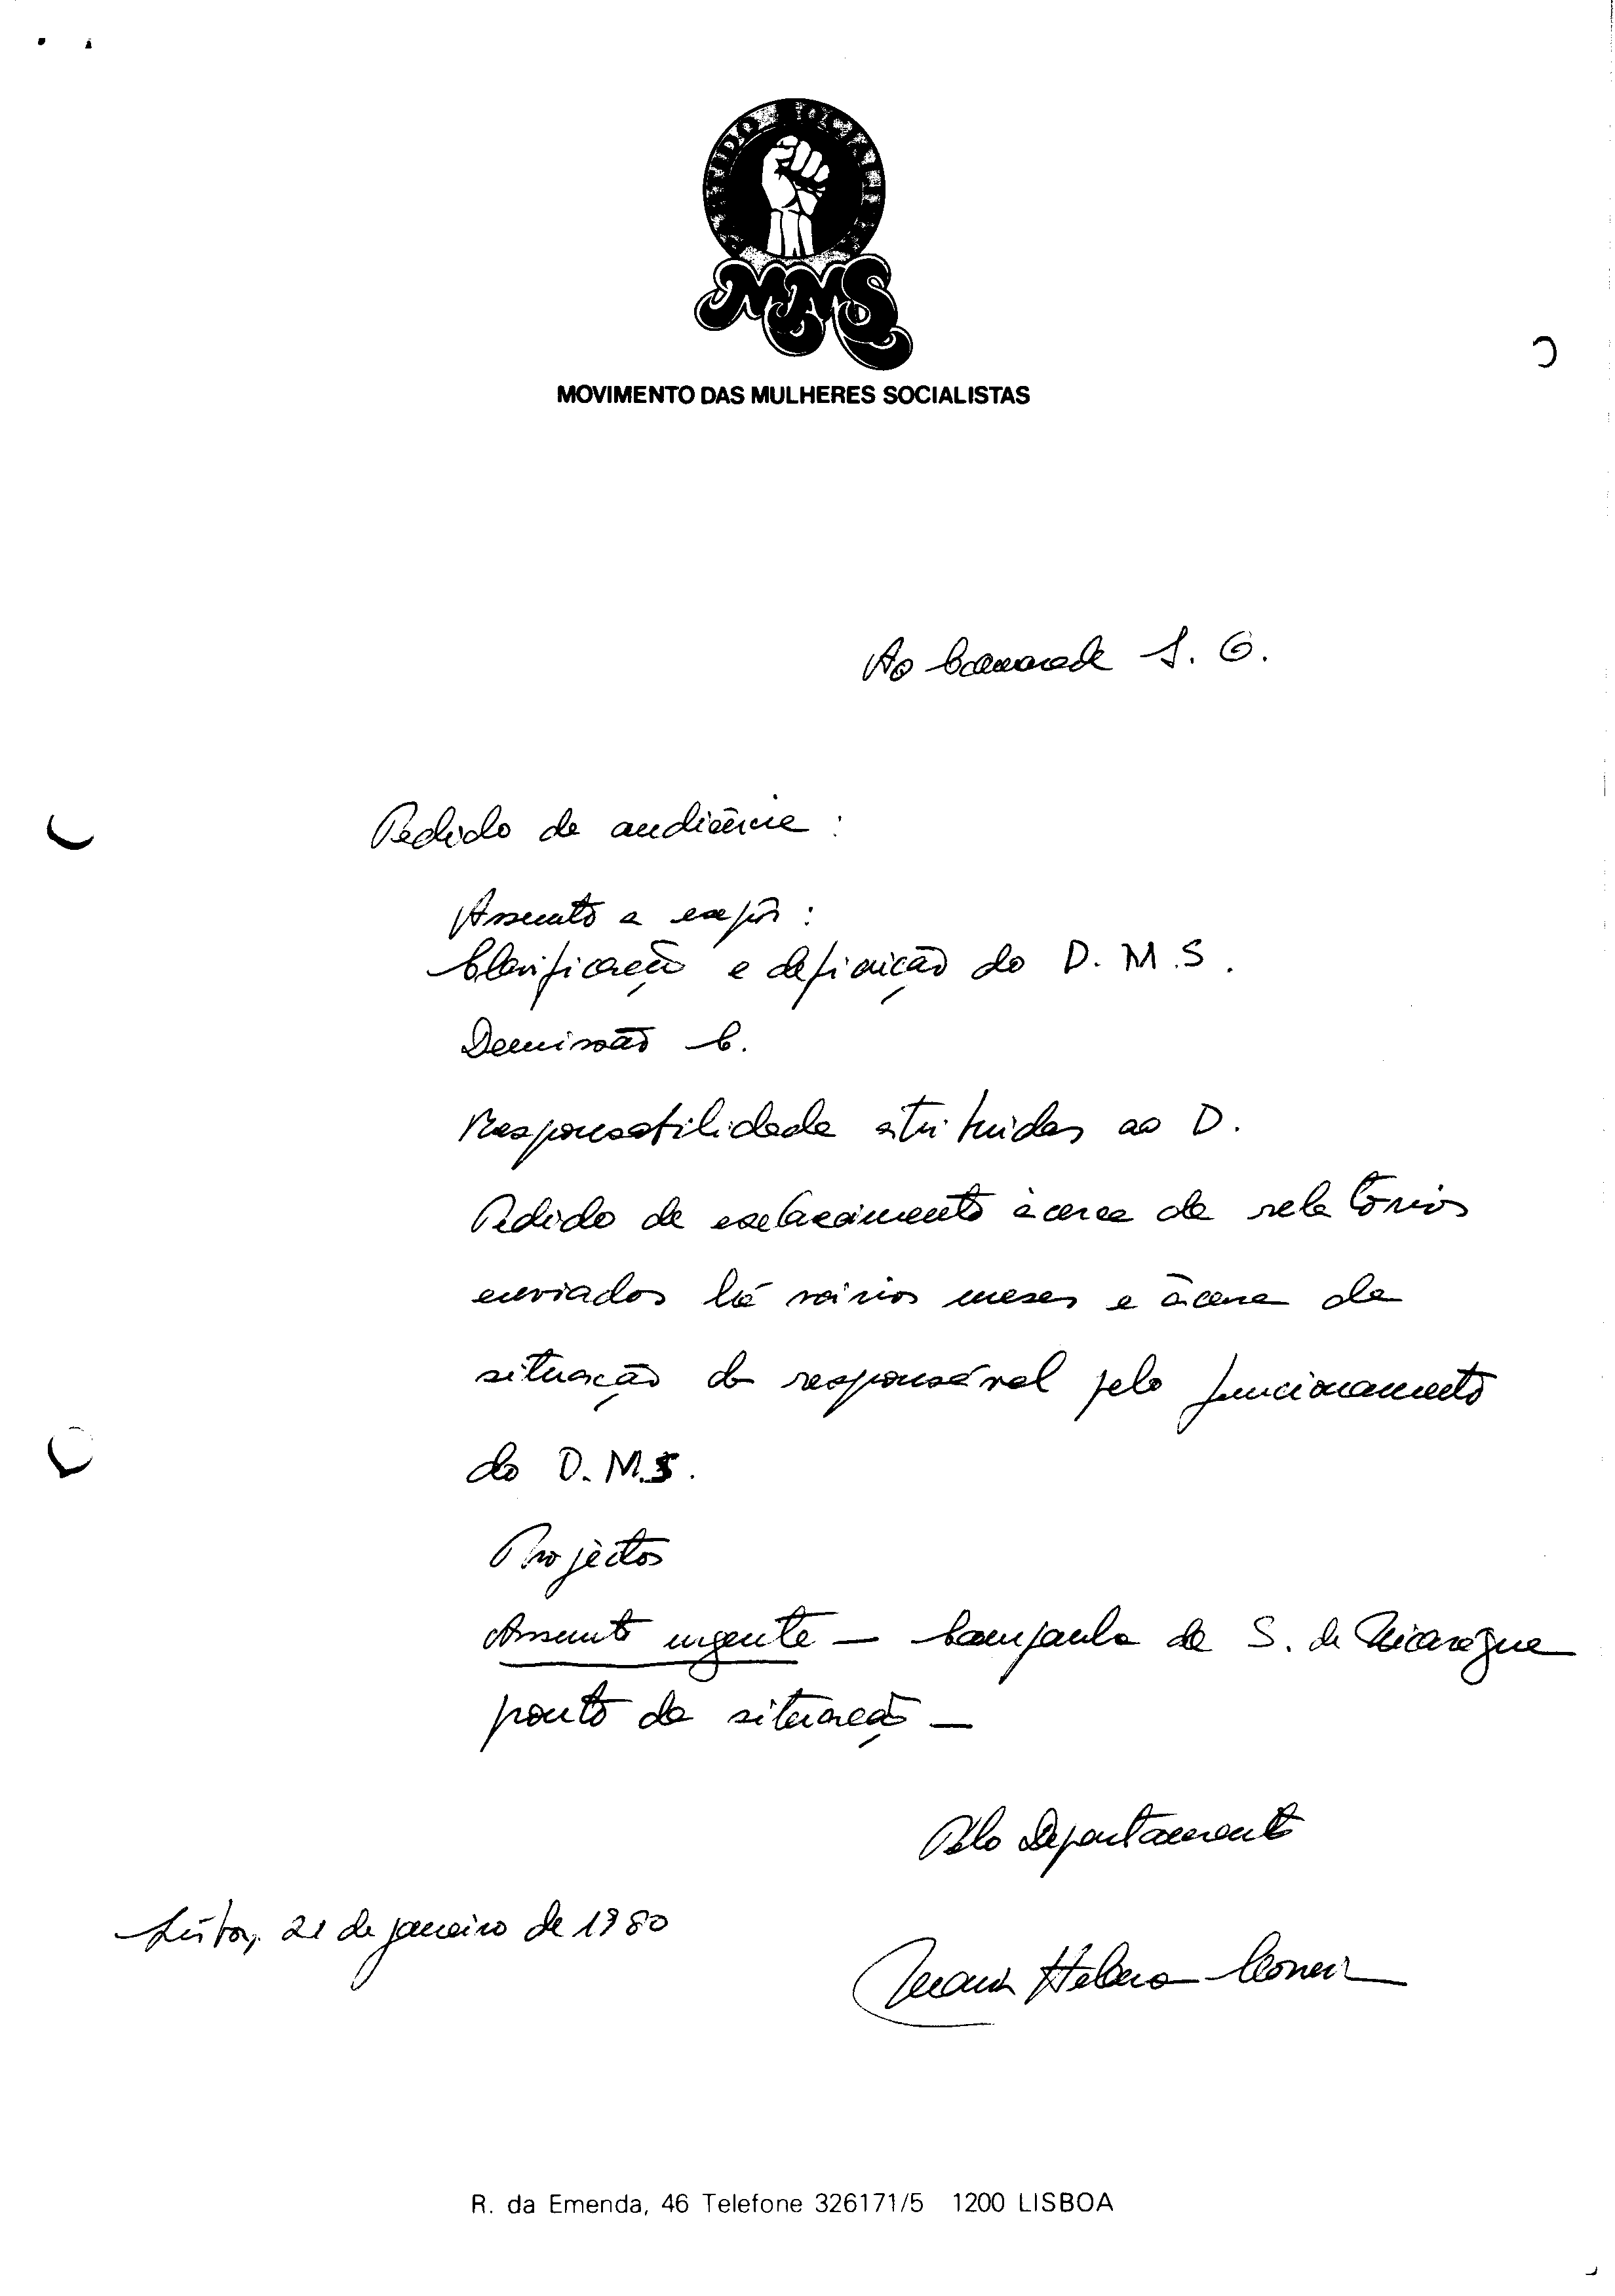 PARTIDO SOCIALISTA
MMS
MOVIMENTO DAS MULHERES SOCIALISTAS
Ao Camarada S. G.
Pedido de audiência :
Assunto a expôr :
Clarificação e definição do D. M. S.
Demissão C.
Responsabilidade atribuidas ao D.
Pedido de esclarecimento àcerca de relatórios
enviados há vários meses e àcerca da
situação da responsável pelo funcionamento
do D. M. S.
Projèctos
Assunto urgente — Campanha de S. da Nicarágua
ponto da situação —
Pelo Departamento
Lisboa, 21 de janeiro de 1980
Maria Helena
R. da Emenda, 46 Telefone 326171/5 1200 LISBOA